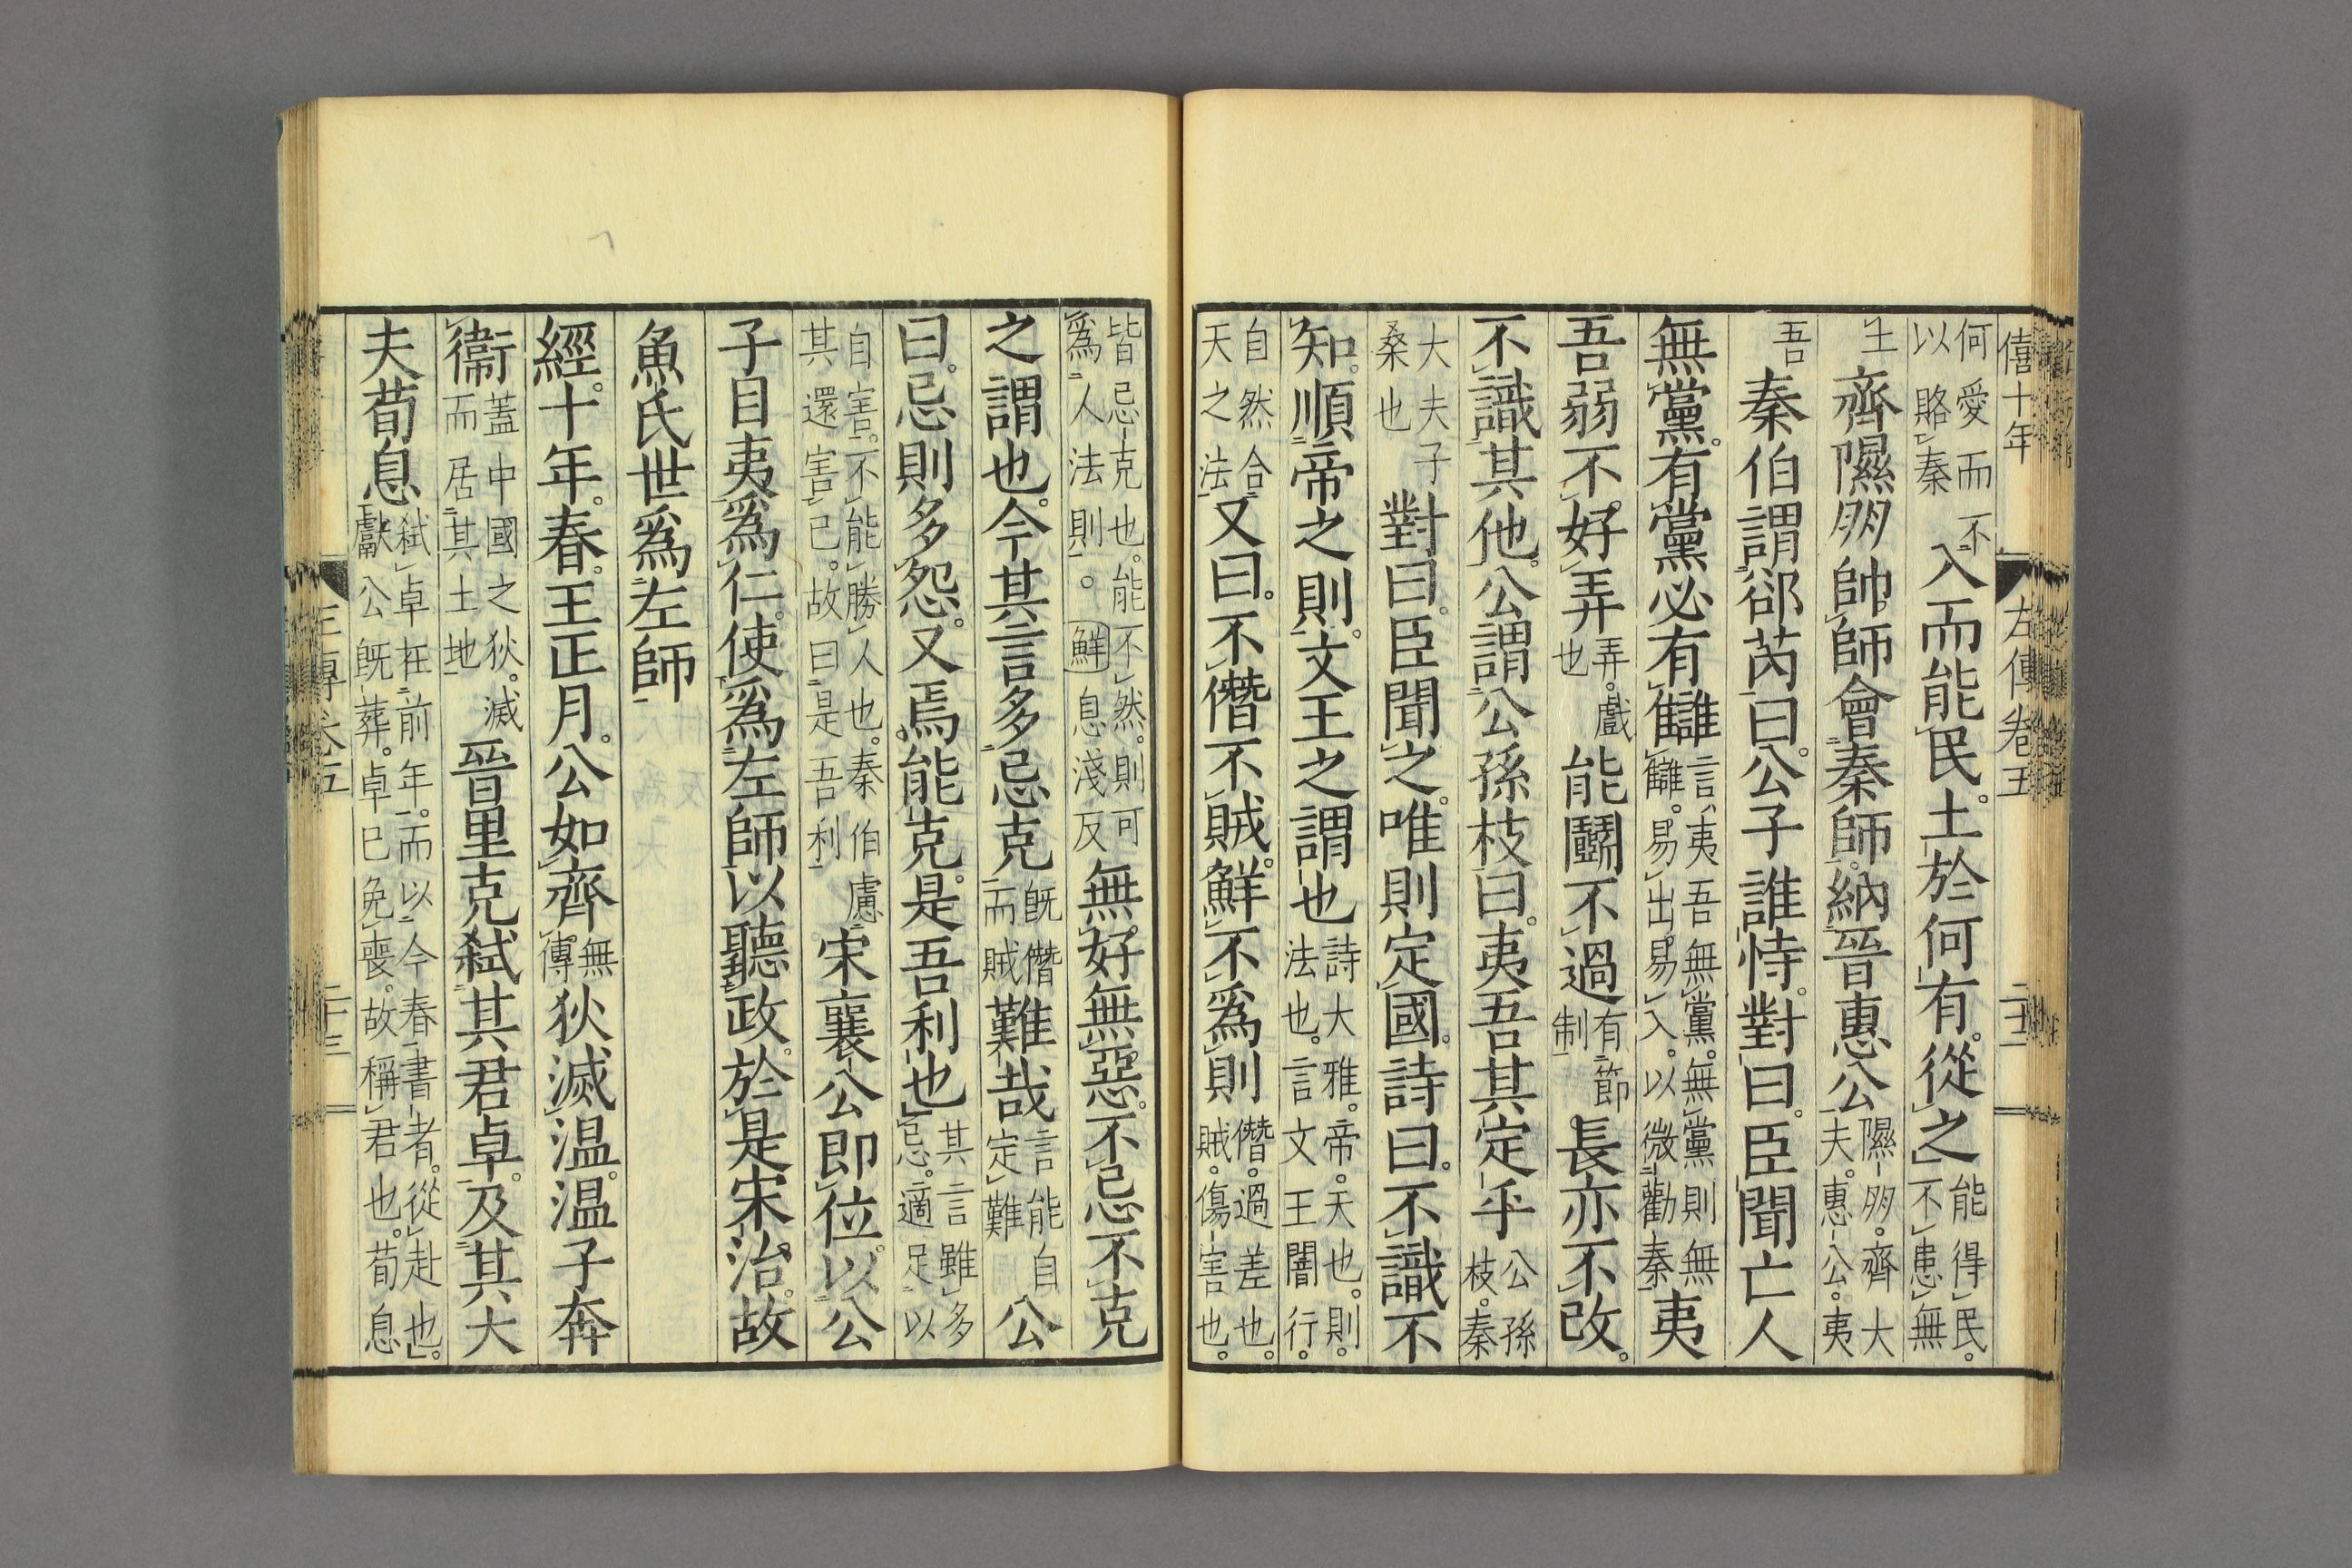 僖十年　左傳卷五
何愛而不以賂秦入而能民。土於何有。從之能得民。不患無
土齊隰朋帥師會秦師。納晉惠公隰朋。齊大夫。惠公。夷
吾秦伯謂郤芮曰。公子誰恃。對曰。臣聞亡人
無黨。有黨必有讎言、夷吾無黨。無黨則無讎。易出易入。以微勸秦夷
吾弱不好弄弄。戲也能鬬不過有節制長亦不改。
不識其他。公謂公孫枝曰。夷吾其定乎公孫枝。秦
大夫子桑也對曰。臣聞之。唯則定國。詩曰。不識不
知。順帝之則。文王之謂也詩大雅。帝。天也。則。法也。言文王闇行。
自然合天之法又曰。不僭不賊。鮮不爲則僭。過差也。賊。傷害也。
皆忌克也。能不然。則可爲人法則。鮮息淺反無好無惡。不忌不克
之謂也。今其言多忌克既僭而賊難哉言能自定難公
曰。忌則多怨。又焉能克。是吾利也其言雖多忌。適足以
自害。不能勝人也。秦伯慮其還害己。故曰是吾利宋襄公即位。以公
子目夷爲仁。使爲左師以聽政。於是宋治。故
魚氏世爲左師
經。十年。春。王正月。公如齊。無傳狄滅溫。溫子奔
衞蓋中國之狄。滅而居其土地晉里克弒其君卓。及其大
夫荀息弒卓在前年。而以今春書者。從赴也。獻公既葬。卓已免喪。故稱君也。荀息